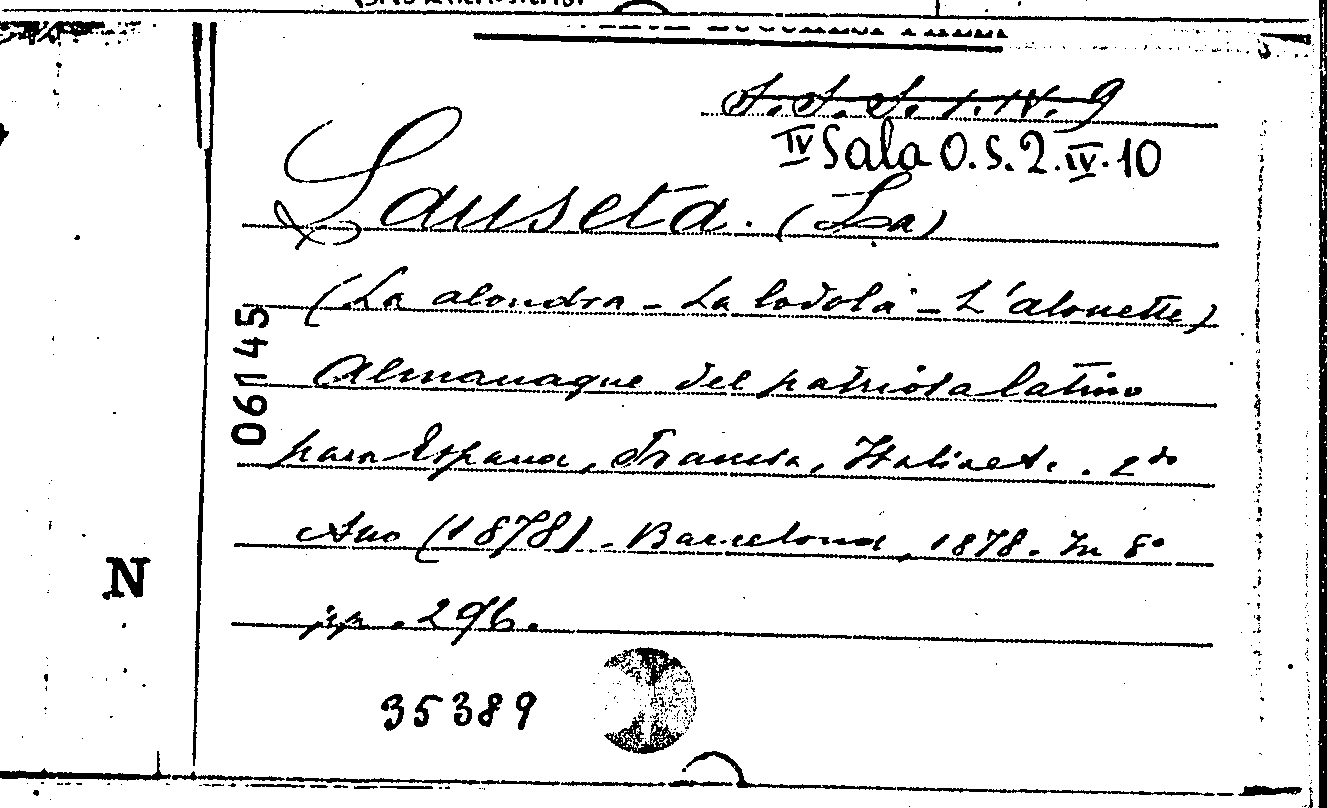 S. S. S. 1. IV. 9
IV Sala O.S.2.IV.10
Lauseta. (La)
(La alondra - La lodola - L'alouette)
Almanaque del patriota latino
para Espana, Francia, Italia et. . 2do
Ano (1878) - Barcelona, 1878. In 8°
pp. 296.
35389
06145
N